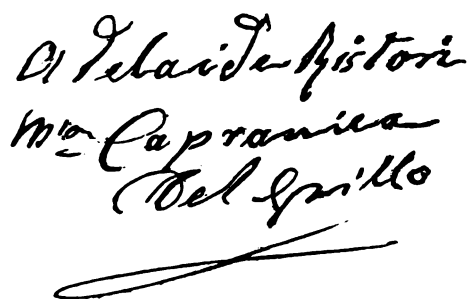 Adelaide Ristori
Msa Capranica
Del Grillo